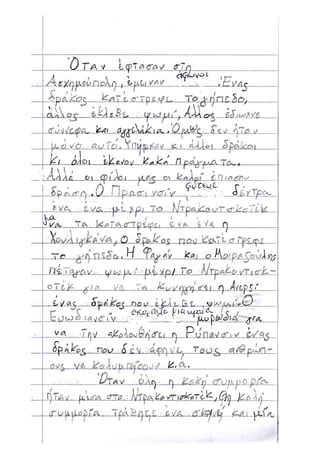 Όταν έφτασαν στη
Ασχημούπολη, έμειναν άφωνοι. Ένας
δράκος κατέστρεφε το γήπεδο,
άλλος έκλεβε ψωμί, Άλλος έδιωχνε
σύννεφα και αγγελάκια. Όμως δεν ήταν
μόνο αυτό. Υπήρχαν κι άλλοι δράκοι
κι όλοι έκαναν κακά πράγματα.
Αλλά οι φίλοι μας οι καλοί έπιασαν
δράση. Ο Πρασινσίν φύτεψε δέντρα
ένα ένα μέχρι το Ντρακουντσκοτέκ
για να τα καταστρέφει ένα ένα η
Χουλιγκάνα, ο δράκος που κατέστρεφε
το γήπεδο. Η Φαγάν και ο Μοιραζούλης
πέταγαν ψωμί μέχρι το Ντρακουντισκ-
οτέκ για να τα κυνηγήσει η
ένας δράκος που έκλεβε ψωμί. Ο
Ευωδιανσίν σκόρπισε μια ωραία μυρωδιά για
να την ακολουθήσει η Ρύπανσιν ένας
δράκος που δεν άφηνε τους ανθρώπ-
ους να κολυμπήσουν κ.α.
Όταν όλη η κακή συμμορία
ήταν μέσα στο Ντρακουντισκοτέκ, η καλή
συμμορία τράβηξε ένα σκοινί και μία